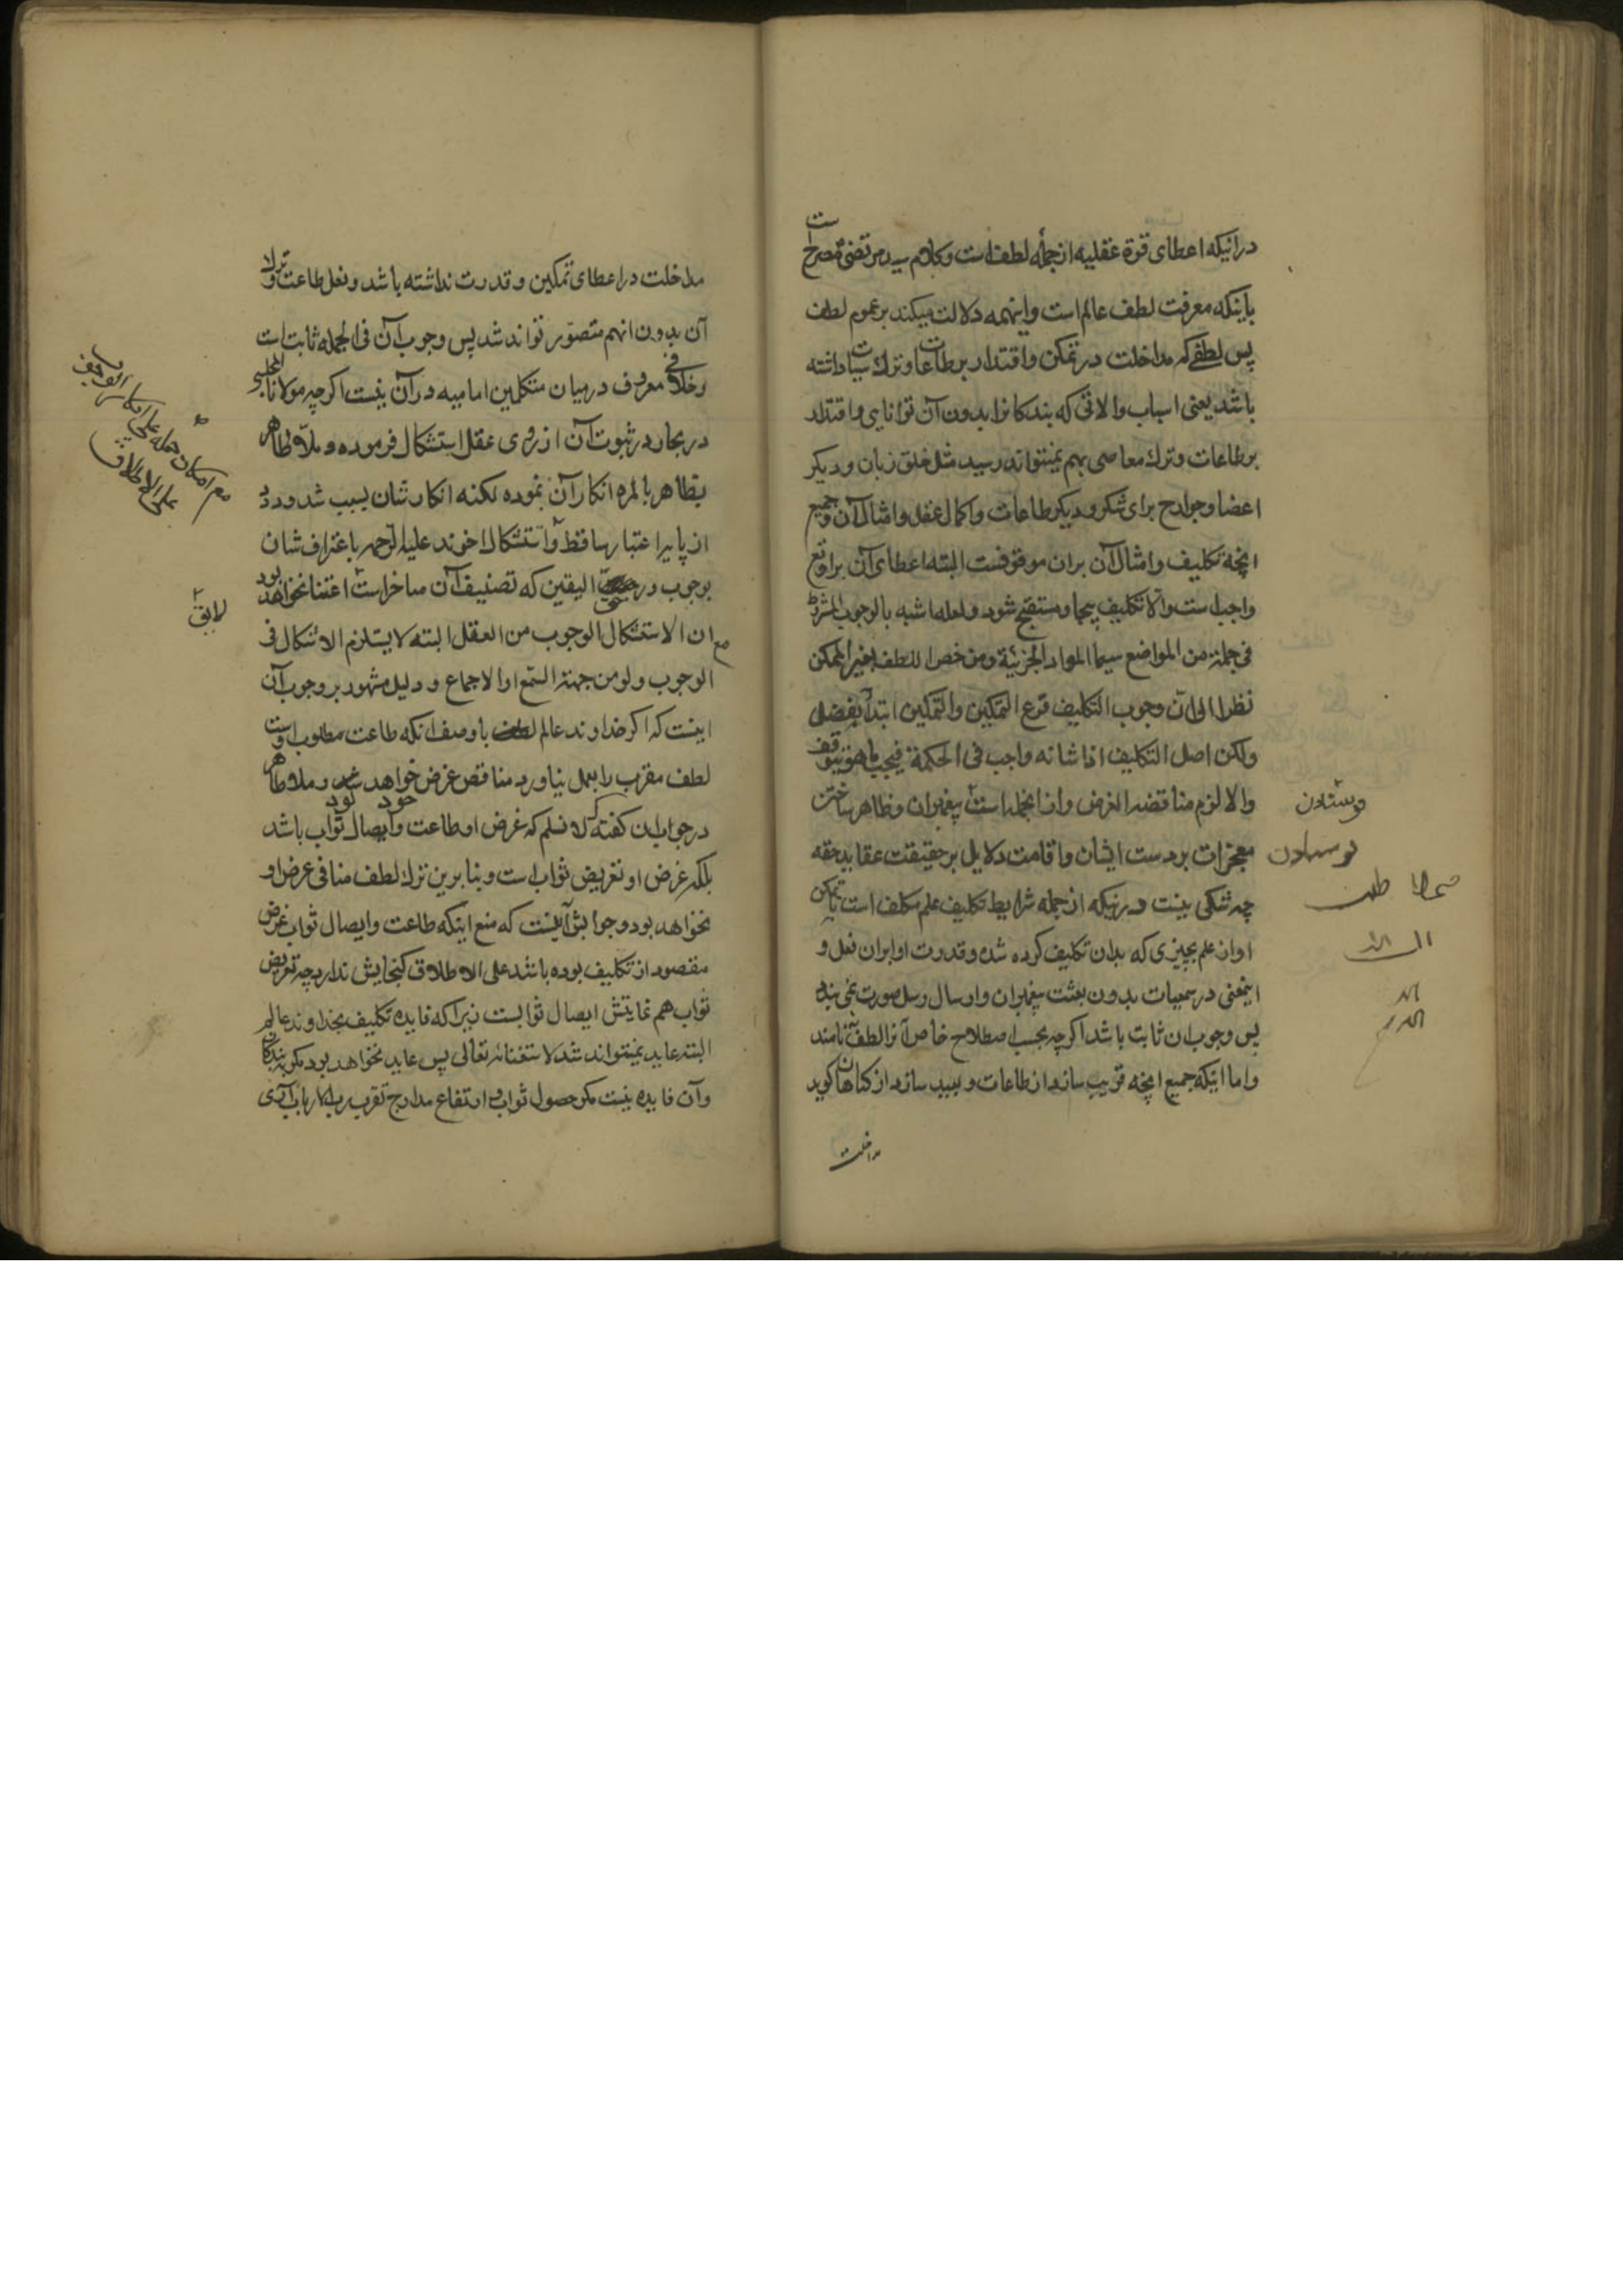 در اینکه اعطای قوة عقلیه از جمله لطف است و کلام سید مرتضی مصرح است
باینکه معرفت لطف عالم است و اینهمه دلالت میکند بر عموم لطف
پس لطفی که مداخلت در تمکن و اقتدار بر طاعات و ترك سیئات داشته
باشد یعنی اسباب والاتی که بندکانرا بدون آن توانایی و اقتدار
بر طاعات و ترك معاصی بهم نمیتواند رسید مثل خلق زبان و دیکر
اعضا و جوارح برای شکر و دیکر طاعات و اکمال عقل و امثال آن و جمیع
انچه تکلیف و امثال آن بران موقوفست البته اعطای آن براو تع
واجب است والا تکلیف بیجا و مستقبح شود ولعله اشبه بالوجوب المشروط
فی جملة من المواضع سیما المواد الجزئیة ومن خص اللطف بغیر الممکن
نظرا الی ان وجوب التکلیف فرع التمکین والتمکین ابتدأ بفضل
ولکن اصل التکلیف اذا شانه واجب فی الحکمة فیجب ما هو یتوقف
والا لزم مناقضة الغرض و از انجمله است پیغمبران و ظاهر ساختن
فرستادن
معجزات بر دست ایشان و اقامت دلایل بر حقیقت عقاید حقه
چه شکی نیست در اینکه از جمله شرایط تکلیف علم مکلف است یا تمکن
او از علم بچیزی که بدان تکلیف کرده شده و قدرت او بران فعل و
اینمعنی در سمعیات بدون بعثت پیغمبران و ارسال رسل صورت نمی بندد
پس وجوب ان ثابت باشد اکرچه بحسب اصطلاح خاص آنرا لطف نامند
و اما اینکه جمیع انچه قریب سازد از طاعات و بعید سازد از کناهان کوید
مداخلت
مداخلت در اعطای تمکین و قدرت نداشته باشد و فعل طاعت و ترك
آن بدون انهم متصوّر تواند شد پس وجوب آن فی الجمله ثابت است
و خلافی معروف در میان متکلمین امامیه در آن نیست اکرچه مولانا المجلسی
در بحار در ثبوت آن از روی عقل استشکال فرموده و ملا طاهر
بظاهر بالمره انکار آن نموده لکنه انکار شان بسبب شذوذ
از پایه اعتبار ساقط و استشکال اخوند علیه الرحمه باعتراف شان
بوجوب در حق الیقین که تصنیف آن متاخر است اعتنا نخواهد بود
لایق
مع ان الاستشکال الوجوب من العقل البته لا یستلزم الاشکال فی
الوجوب ولو من جهة السّمع او الاجماع و دلیل مشهور بر وجوب آن
اینست که اکر خداوند عالم با وصف انکه طاعت مطلوب اوست
لطف مقرب را بعمل نیاورد مناقض غرض خواهد شد و ملا طاهر
خود بود
در جواب ان کفته که لا نسلم که غرض او طاعت و ایصال ثواب باشد
بلکه غرض او تعریض ثواب است و بنا برین ترك لطف منافی غرض او
نخواهد بود و جوابش آنیست که منع اینکه طاعت و ایصال ثواب غرض
مقصود از تکلیف بوده باشد علی الاطلاق کنجایش ندارد چه تعریض
ثواب هم غایتش ایصال ثوابست زیرا که فایده تکلیف بخداوند عالم
البته عاید نمیتواند شد لاستغنائه تعالی پس عاید نخواهد بود مکر به بندکان
و آن فایده نیست مکر حصول ثواب و ارتفاع مدارج تقرب
مع امکان حمله علی انکار
علی الاطلاق